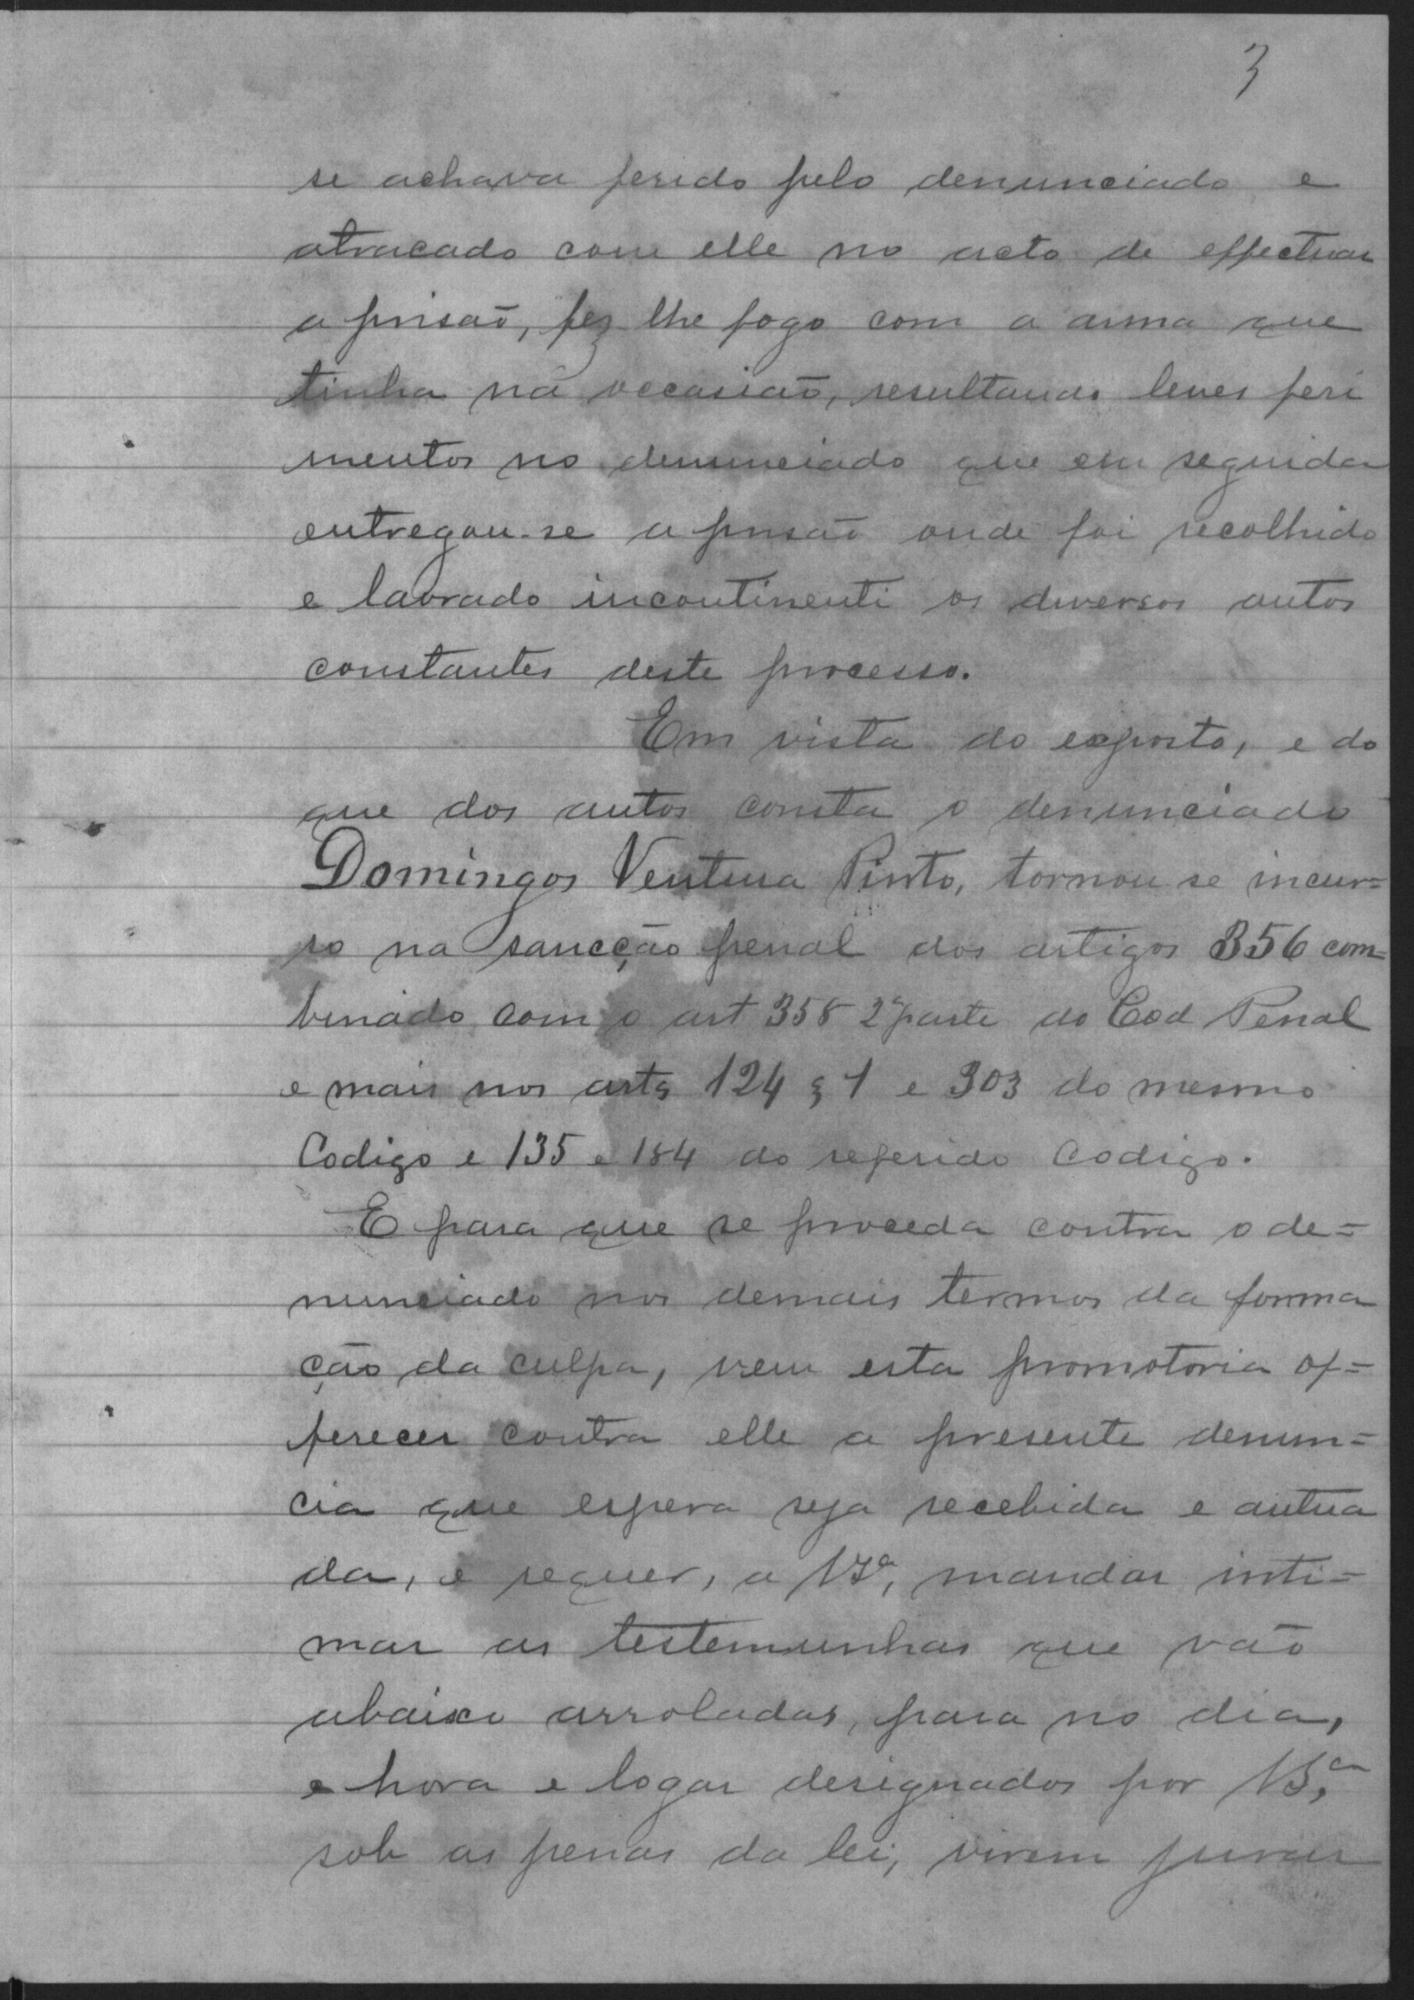 3
se achava ferido pelo denunciado e
atracado com elle no acto de effectuar
a prisão, fez lhe fogo com a arma que
tinha na occasião, resultando leves feri
mentos no denunciado que em seguida
entregou-se a prisão onde foi recolhido
e lavrado incontinenti os diversos autos
constantes deste processo.
Em vista do exposto, e do
que dos autos consta o denunciado
Domingos Ventura Pinto, tornou se incur=
so na sancção penal dos artigos 356 com=
binado com o art 358 2ª parte do Cod Penal
e mais nos arts 124 § 1 e 303 do mesmo
Codigo e 135 e 184 do referido Codigo.
E para que se proceda contra o de=
nunciado nos demais termos da forma
ção da culpa, vem esta promotoria of=
ferecer contra elle a presente denun=
cia que espera seja recebida e autua
da, e requer, a VSª, mandar inti=
mar as testemunhas que vão
abaixo arroladas, para no dia,
e hora e logar designados por VSª,
sob as penas da lei, virem jurar